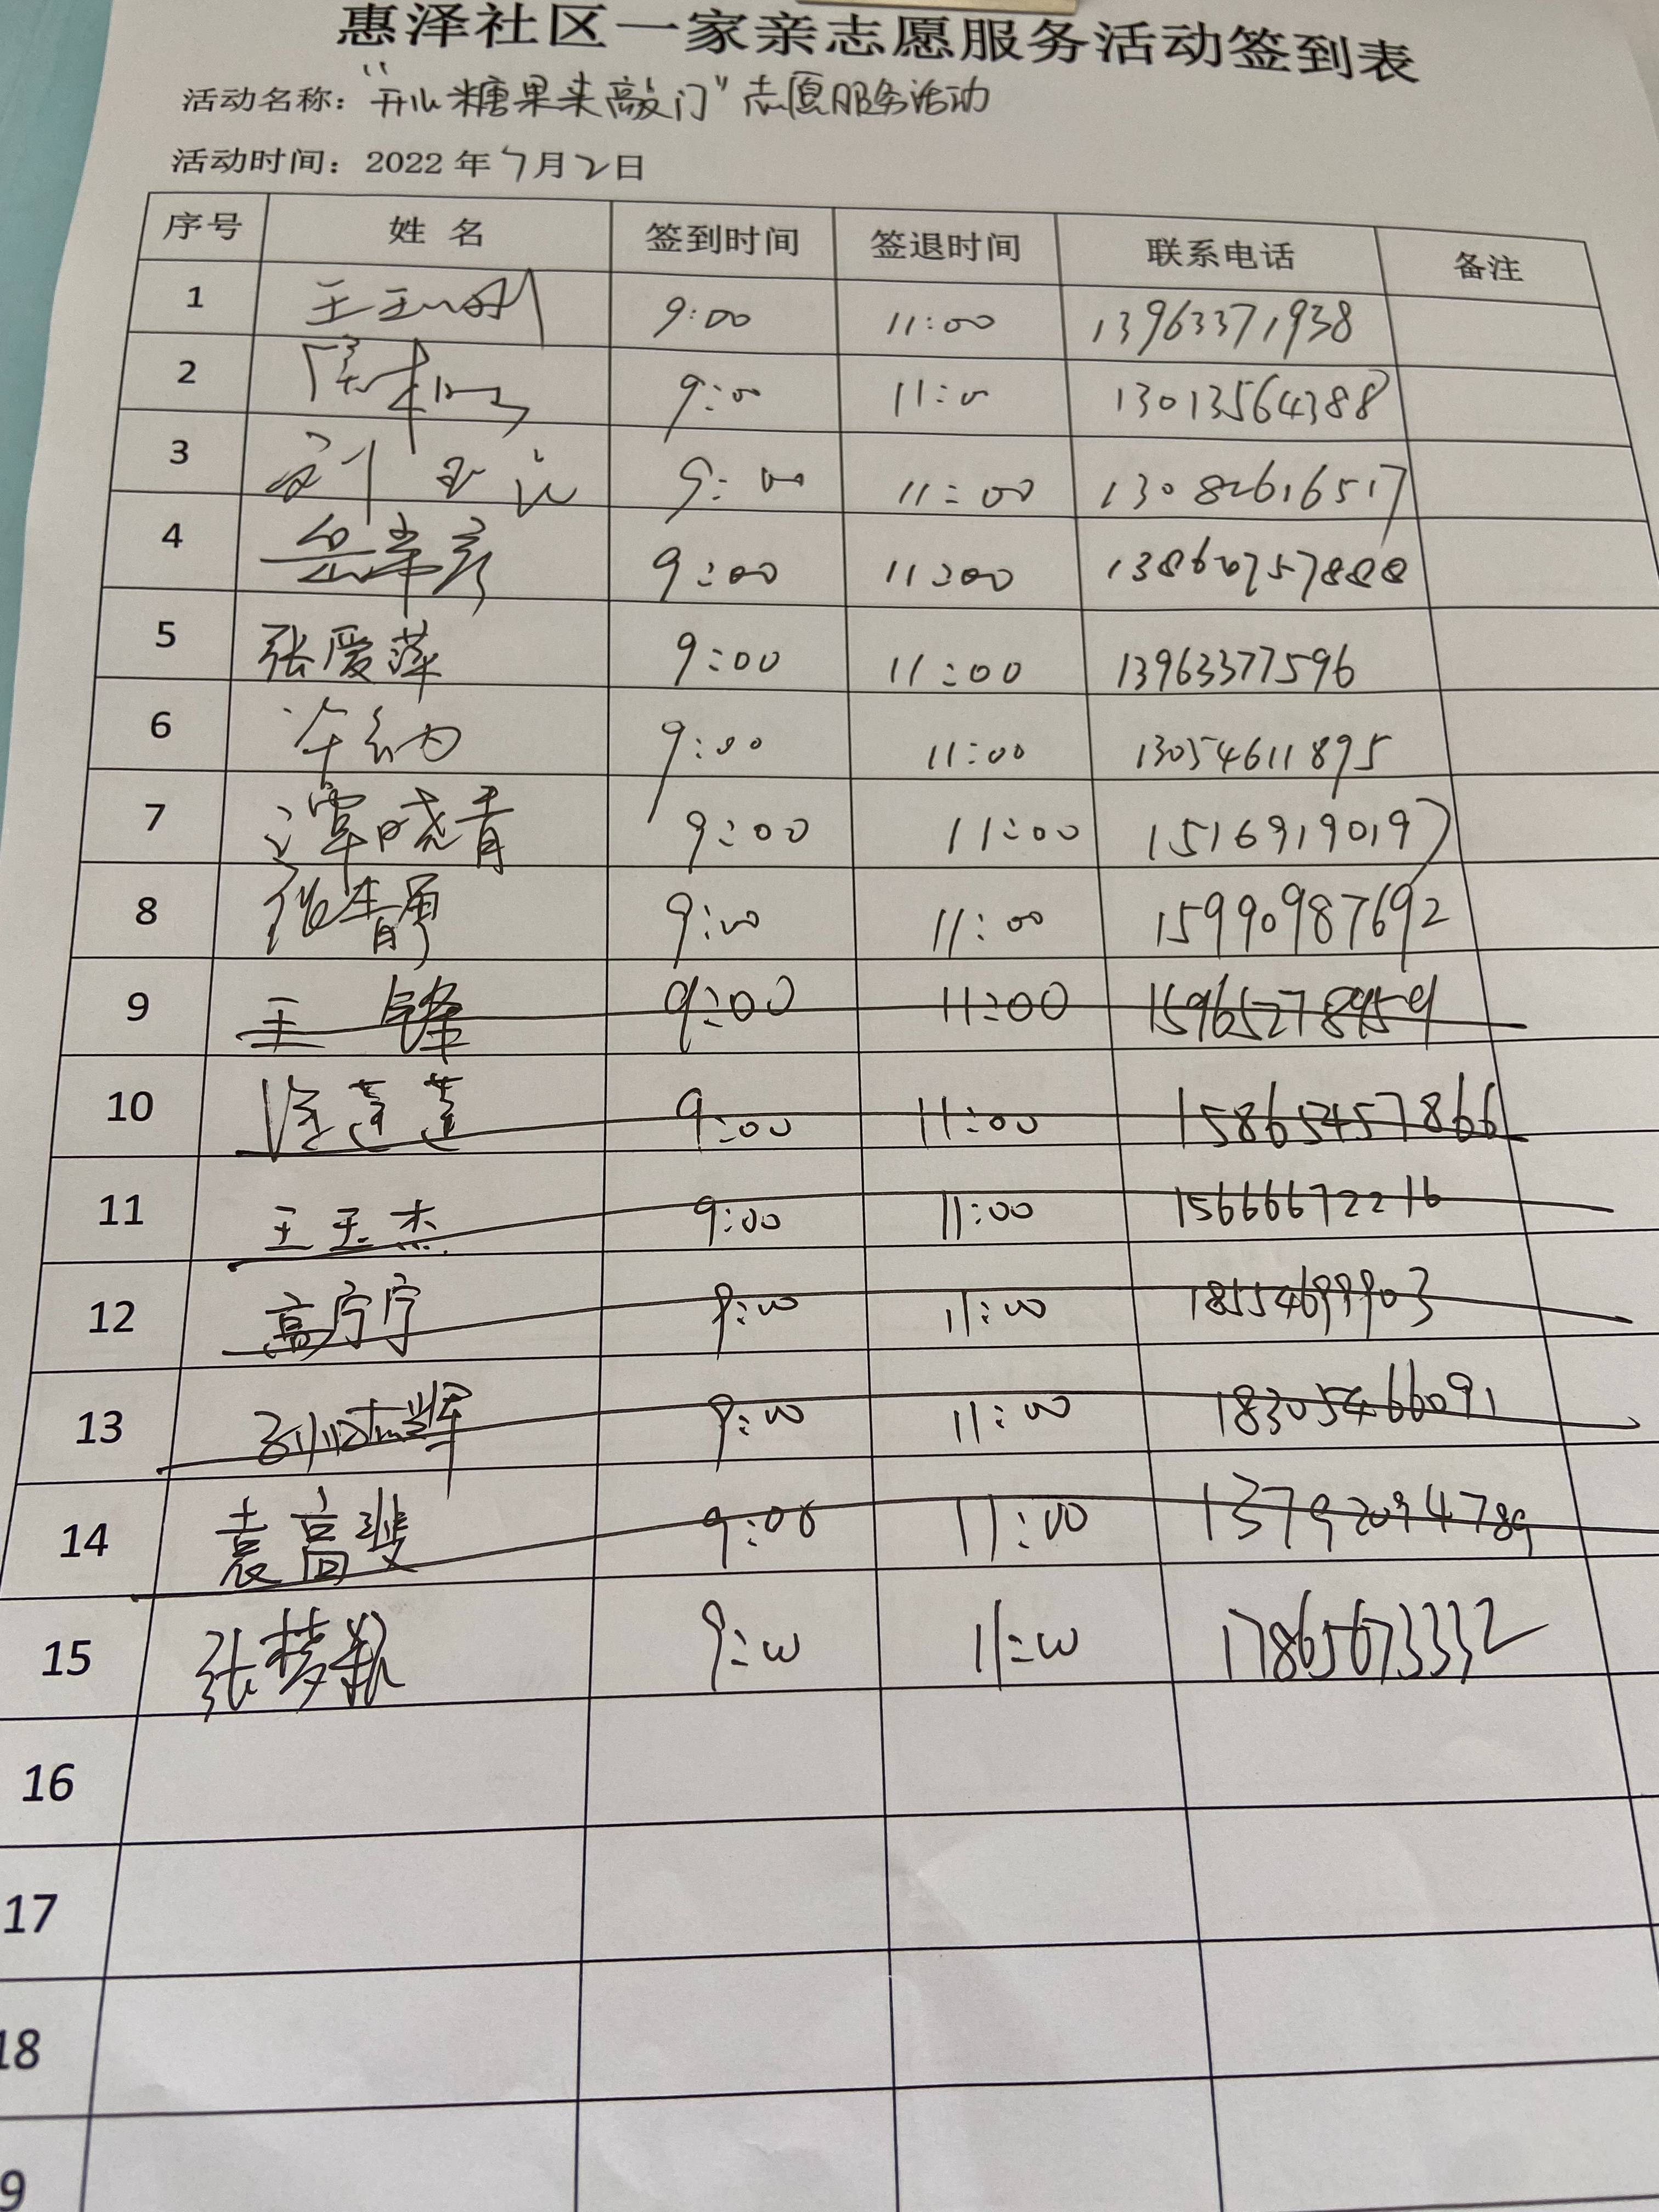 惠泽社区一家亲志愿服务活动签到表
活动名称：“开心糖果来敲门”志愿服务活动
活动时间：2022年7月2日
序号 姓名 签到时间 签退时间 联系电话 备注
1 9:00 11:00 13963371938
2 9:00 11:00 13013564388
3 9:00 11:00 13082616517
4 9:00 11:00
5 张爱萍 9:00 11:00 13963377596
6 9:00 11:00 13054611895
7 谭晓青 9:00 11:00 15169190197
8 9:00 11:00 15990987692
9 王锋 9:00 11:00 15965278959
10 徐莲莲 9:00 11:00 15865457866
11 王玉杰 9:00 11:00 15666672216
12 高宁宁 9:00 11:00 18554699903
13 9:00 11:00 18305466091
14 袁高斐 9:00 11:00 13792094789
15 9:00 11:00 17865673332
16
17
18
9